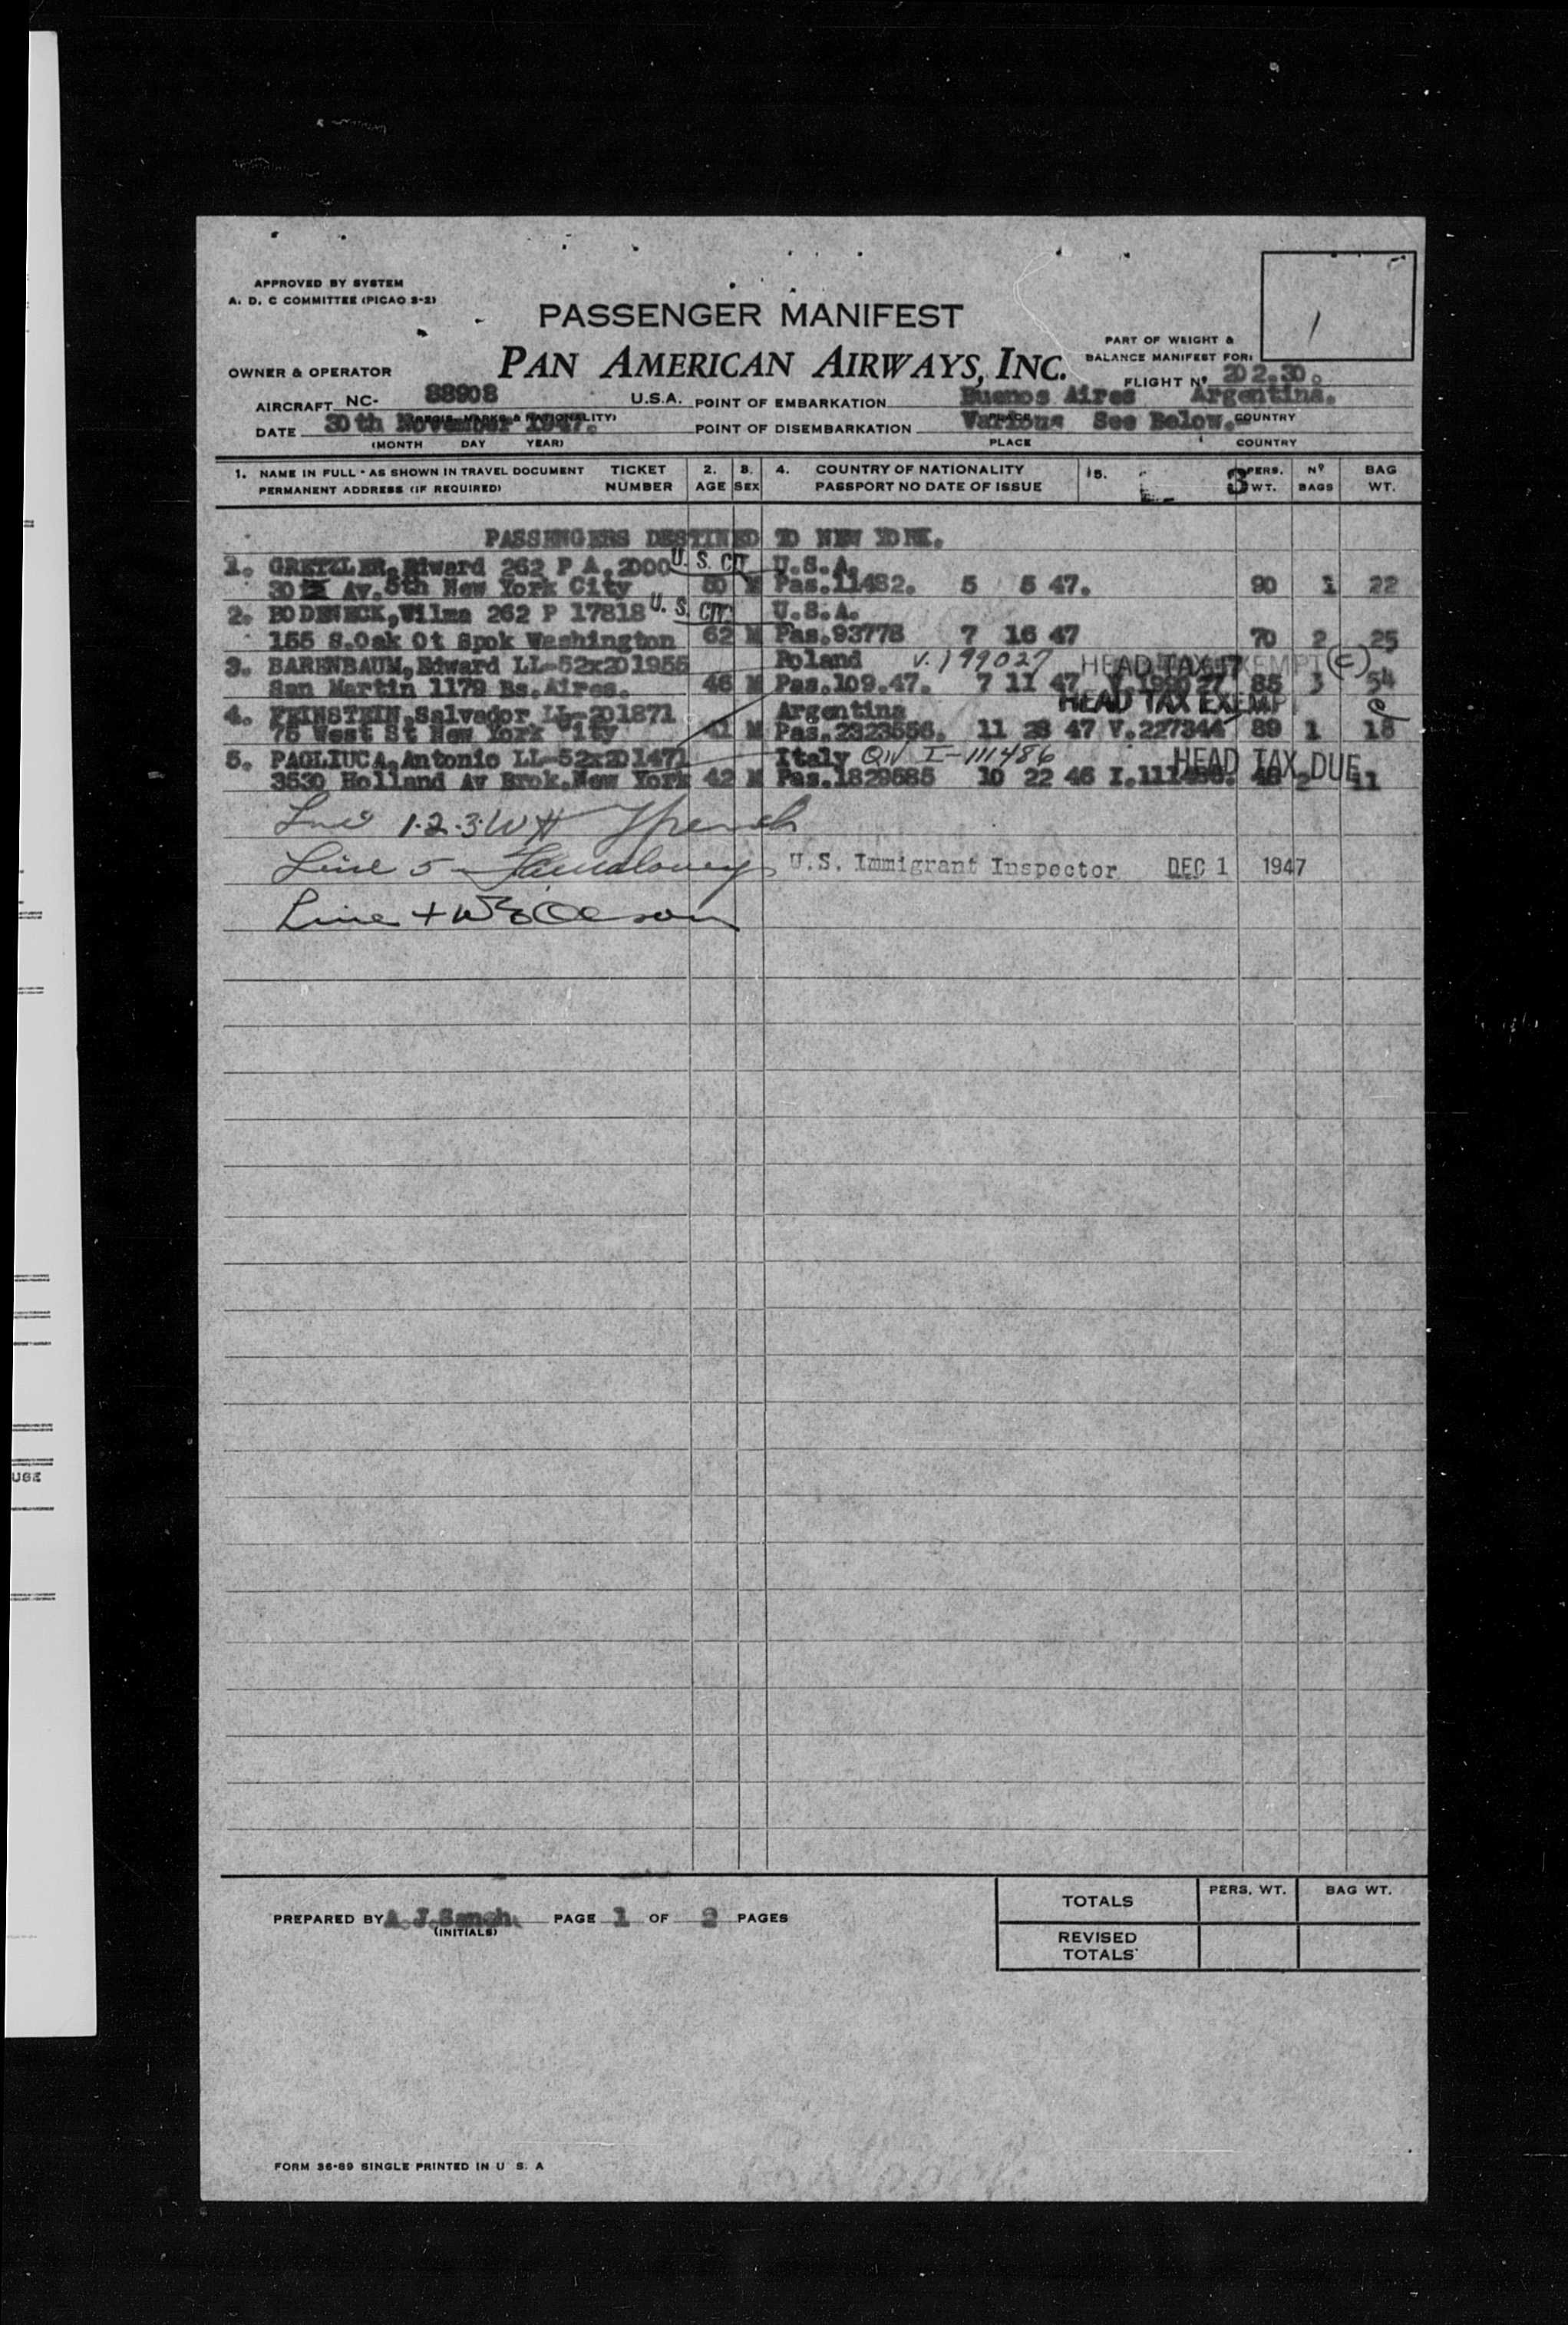 APPROVED BY SYSTEM
A. D. C COMMITTEE (PICAO 2-2)
1
PASSENGER MANIFEST
PAN AMERICAN AIRWAYS, INC.
PART OF WEIGHT &
BALANCE MANIFEST FOR:
OWNER & OPERATOR
FLIGHT Nº 202.30.
AIRCRAFT NC- 88908 U.S.A. POINT OF EMBARKATION Buenos Aires Argentina.
DATE 30th November 1947. POINT OF DISEMBARKATION Various See Below. COUNTRY
(MONTH DAY YEAR) PLACE COUNTRY
1. NAME IN FULL - AS SHOWN IN TRAVEL DOCUMENT TICKET 2. 3. 4. COUNTRY OF NATIONALITY 5. 3 PERS. Nº BAG
PERMANENT ADDRESS (IF REQUIRED) NUMBER AGE SEX PASSPORT NO DATE OF ISSUE WT. BAGS WT.
PASSENGERS DESTINED TO NEW YORK.
1. GRETZLER, Edward 262 P A. 2000 U. S. CIT U.S.A.
30 Av. 5th New York City 50 M Pas.11482. 5 5 47. 90 1 22
2. BODENECK, Wilma 262 P 17818 U. S. CIT. U.S.A.
155 S.Oak Ot Spok Washington 62 M Pas.93778 7 16 47 70 2 25
3. BARENBAUM, Edward LL-52x201955 Poland V. 199027 HEAD TAX EXEMPT (C)
San Martin 1179 Bs.Aires. 46 M Pas.109.47. 7 11 47 V.199027 85 3 54
HEAD TAX EXEMPT
4. FEINSTEIN, Salvador LL-201871 Argentina C
75 West St New York City 41 M Pas.2323556. 11 28 47 V.227344 89 1 18
5. PAGLIUCA, Antonio LL-52x201471 Italy QIV I-111486 HEAD TAX DUE
3530 Holland Av Brok.New York 42 M Pas.1829585 10 22 46 I.111486. 48 2 11
1.2.3. WH French
Line 5 U.S. Immigrant Inspector DEC 1 1947
Line 4 Oleson
PREPARED BY A.J.Sanch. PAGE 1 OF 2 PAGES
(INITIALS)
TOTALS PERS. WT. BAG WT.
REVISED
TOTALS
FORM 36-89 SINGLE PRINTED IN U S. A
USE